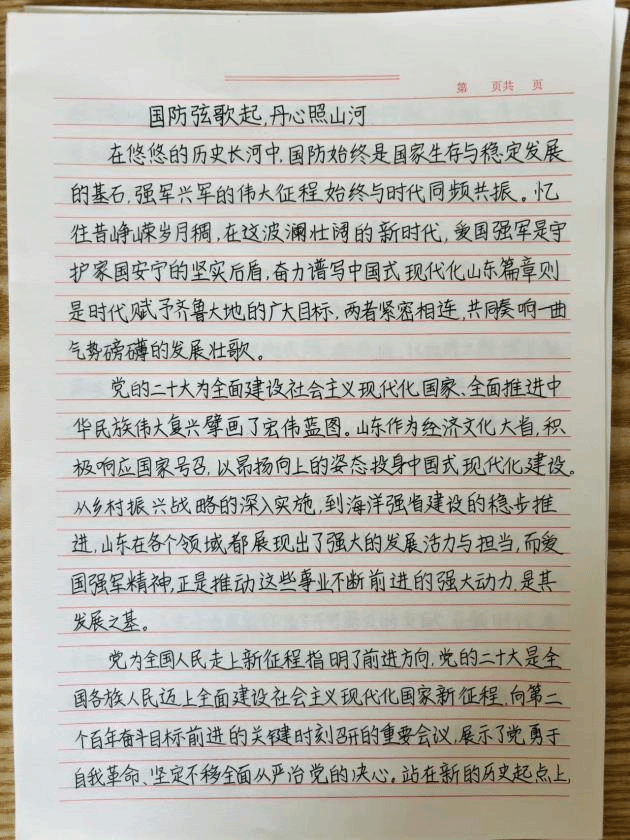 第 页共 页
国防弦歌起,丹心照山河
在悠悠的历史长河中,国防始终是国家生存与稳定发展
的基石,强军兴军的伟大征程始终与时代同频共振。忆
往昔峥嵘岁月稠,在这波澜壮阔的新时代,爱国强军是守
护家国安宁的坚实后盾,奋力谱写中国式现代化山东篇章则
是时代赋予齐鲁大地的广大目标,两者紧密相连,共同奏响一曲
气势磅礴的发展壮歌。
党的二十大为全面建设社会主义现代化国家、全面推进中
华民族伟大复兴擘画了宏伟蓝图。山东作为经济文化大省,积
极响应国家号召,以昂扬向上的姿态投身中国式现代化建设。
从乡村振兴战略的深入实施,到海洋强省建设的稳步推
进,山东在各个领域都展现出了强大的发展活力与担当,而爱
国强军精神,正是推动这些事业不断前进的强大动力,是其
发展之基。
党为全国人民走上新征程指明了前进方向,党的二十大是全
国各族人民迈上全面建设社会主义现代化国家新征程,向第二
个百年奋斗目标前进的关键时刻召开的重要会议,展示了党勇于
自我革命、坚定不移全面从严治党的决心。站在新的历史起点上,